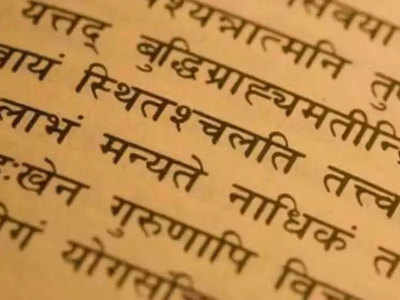 सेवया
श्यन्नात्मनि तु
यत्तद् बुद्धिग्राह्यमतीन्द्रि
वायं स्थितश्चलति तत्त्व
लाभं मन्यते नाधिकं त
ःखेन गुरुणापि वि
योगं योगसं